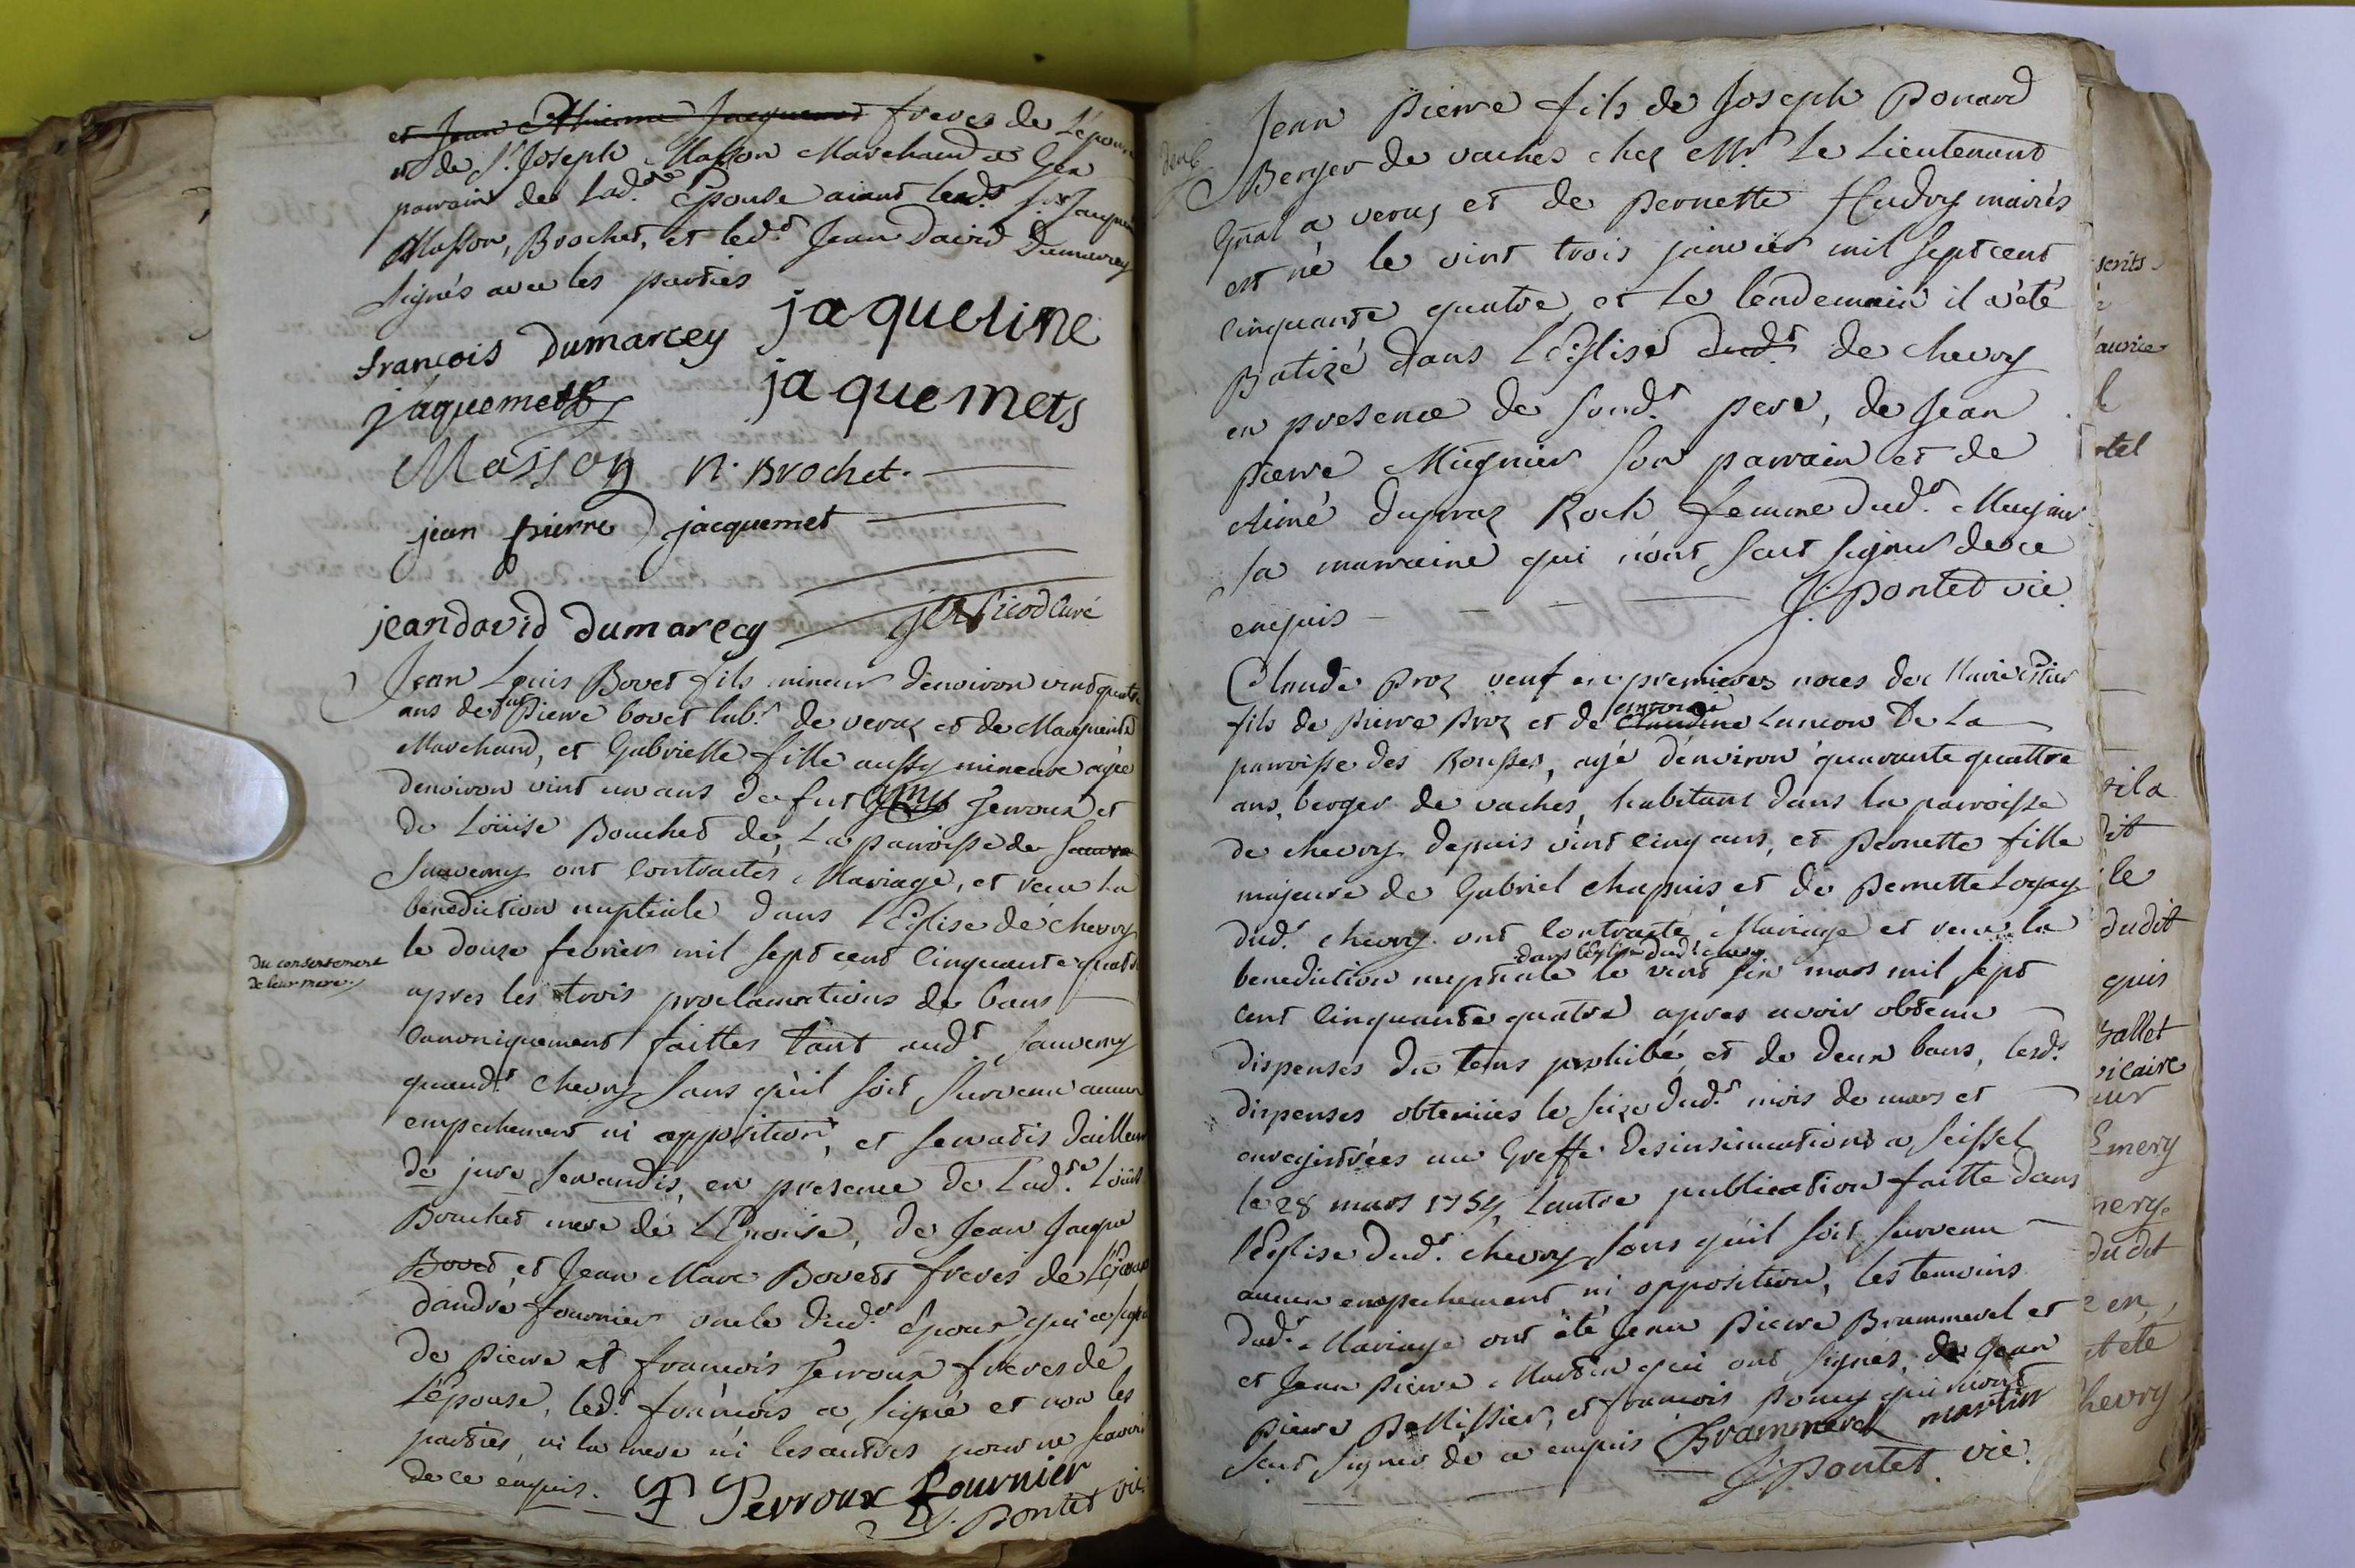 et Jean Athienne Jacquemet freres de L'epouse
et de Sr. Joseph Masson Marchand a Gex
parrain de Lad.te Epouse aiant lesd.ts Srs Jaquemet
Masson, Brochet, et led.t Jean David Dumarcey
signés avec les parties
francois Dumarcey jaqueline
jaquemets jaquemets
Masson n. Brochet.
jean pierre jacquemet
jean david dumarecy curé
Jean Louis Bovet fils mineur d'environ vint quatre
ans de fut Pierre bovet lab.r de veraz et de Marguerite
Marchand, et Gabrielle fille aussy mineure agée
d'environ vint un ans de fut amy Perroux et
de Loüise Bouchet de La paroisse de Sauve
Sauverny ont contractés Mariage, et receu la
benediction nuptiale dans l'Eglise de chevry
le douze fevrier mil sept cent cinquante quatre
du consentement
de leur mere
apres les trois proclamations de bans
canoniquement faittes tant aud.t Sauverny
quaud.t chevry sans qu'il soit survenu aucun
empechement ni opposition, et servatis d'ailleurs
de jure servandis, en presence de Lad.te Loüise
Bouchet mere de L'Epouse, de Jean Jacque
Bovet et Jean Marc Bovets freres de L'Epoux
d'andré fournier oncle dud.t Epoux qui a signé
de Pierre et francois Perroux freres de
L'épouse, led.t francois a signé et non les
parties, ni la mere ni les autres pour ne scavoir
de ce enquis. F Perroux fournier
J. Pontet vic.
Jean Pierre fils de Joseph Ponard
Berger de vaches chez Mr. Le Lieutenant
Gnal a veraz et de Pernette Hudry mariés
est né le vint trois janvier mil sept cent
cinquante quatre, et Le lendemain il a été
Batizé dans L'Eglise dud.t de chevry
en presence de sond.t pere, de Jean
Pierre Mugnier son parrain et de
Aimé dupraz Roch femme dud.t Mugnier
sa marraine qui n'ont sceut signer de ce
enquis J. Pontet vic.
Claude Proz veuf en premieres noces de Marie
fils de Pierre Proz et de Claudine Lancon De La
parroisse des Rousses, agé d'environ quarante quattre
ans, berger de vaches, habitant dans la parroisse
de chevry depuis vint cinq ans, et Pernette fille
majeure de Gabriel chapuis et de Pernette Logay
dud.t chevry ont contracté Mariage et receu la
dans l'Eglise dud.t chevry
benediction nuptiale le vint six mars mil sept
cent cinquante quatre apres avoir obtenu
dispenses du tems prohibé, et de deux bans, lesd.
dispenses obtenües le seize dud.t mois de mars et
enregistrées au Greffe des insinuations a seissel
le 28 mars 1754, l'autre publication faitte dans
l'Eglise dud.t chevry sans qu'il soit survenu
aucun empechement ni opposition, les temoins
dud.t Mariage ont été Jean Pierre Brammerel et
et Jean Pierre Martin qui ont signés, de Jean
Pierre Pellissier, et francois Poncy qui n'ont
sceut signer de ce enquis Brammerel martin
J. Pontet. vic.
dit
le
dudit
quis
vicaire
Emery
dudit
et été
chevry